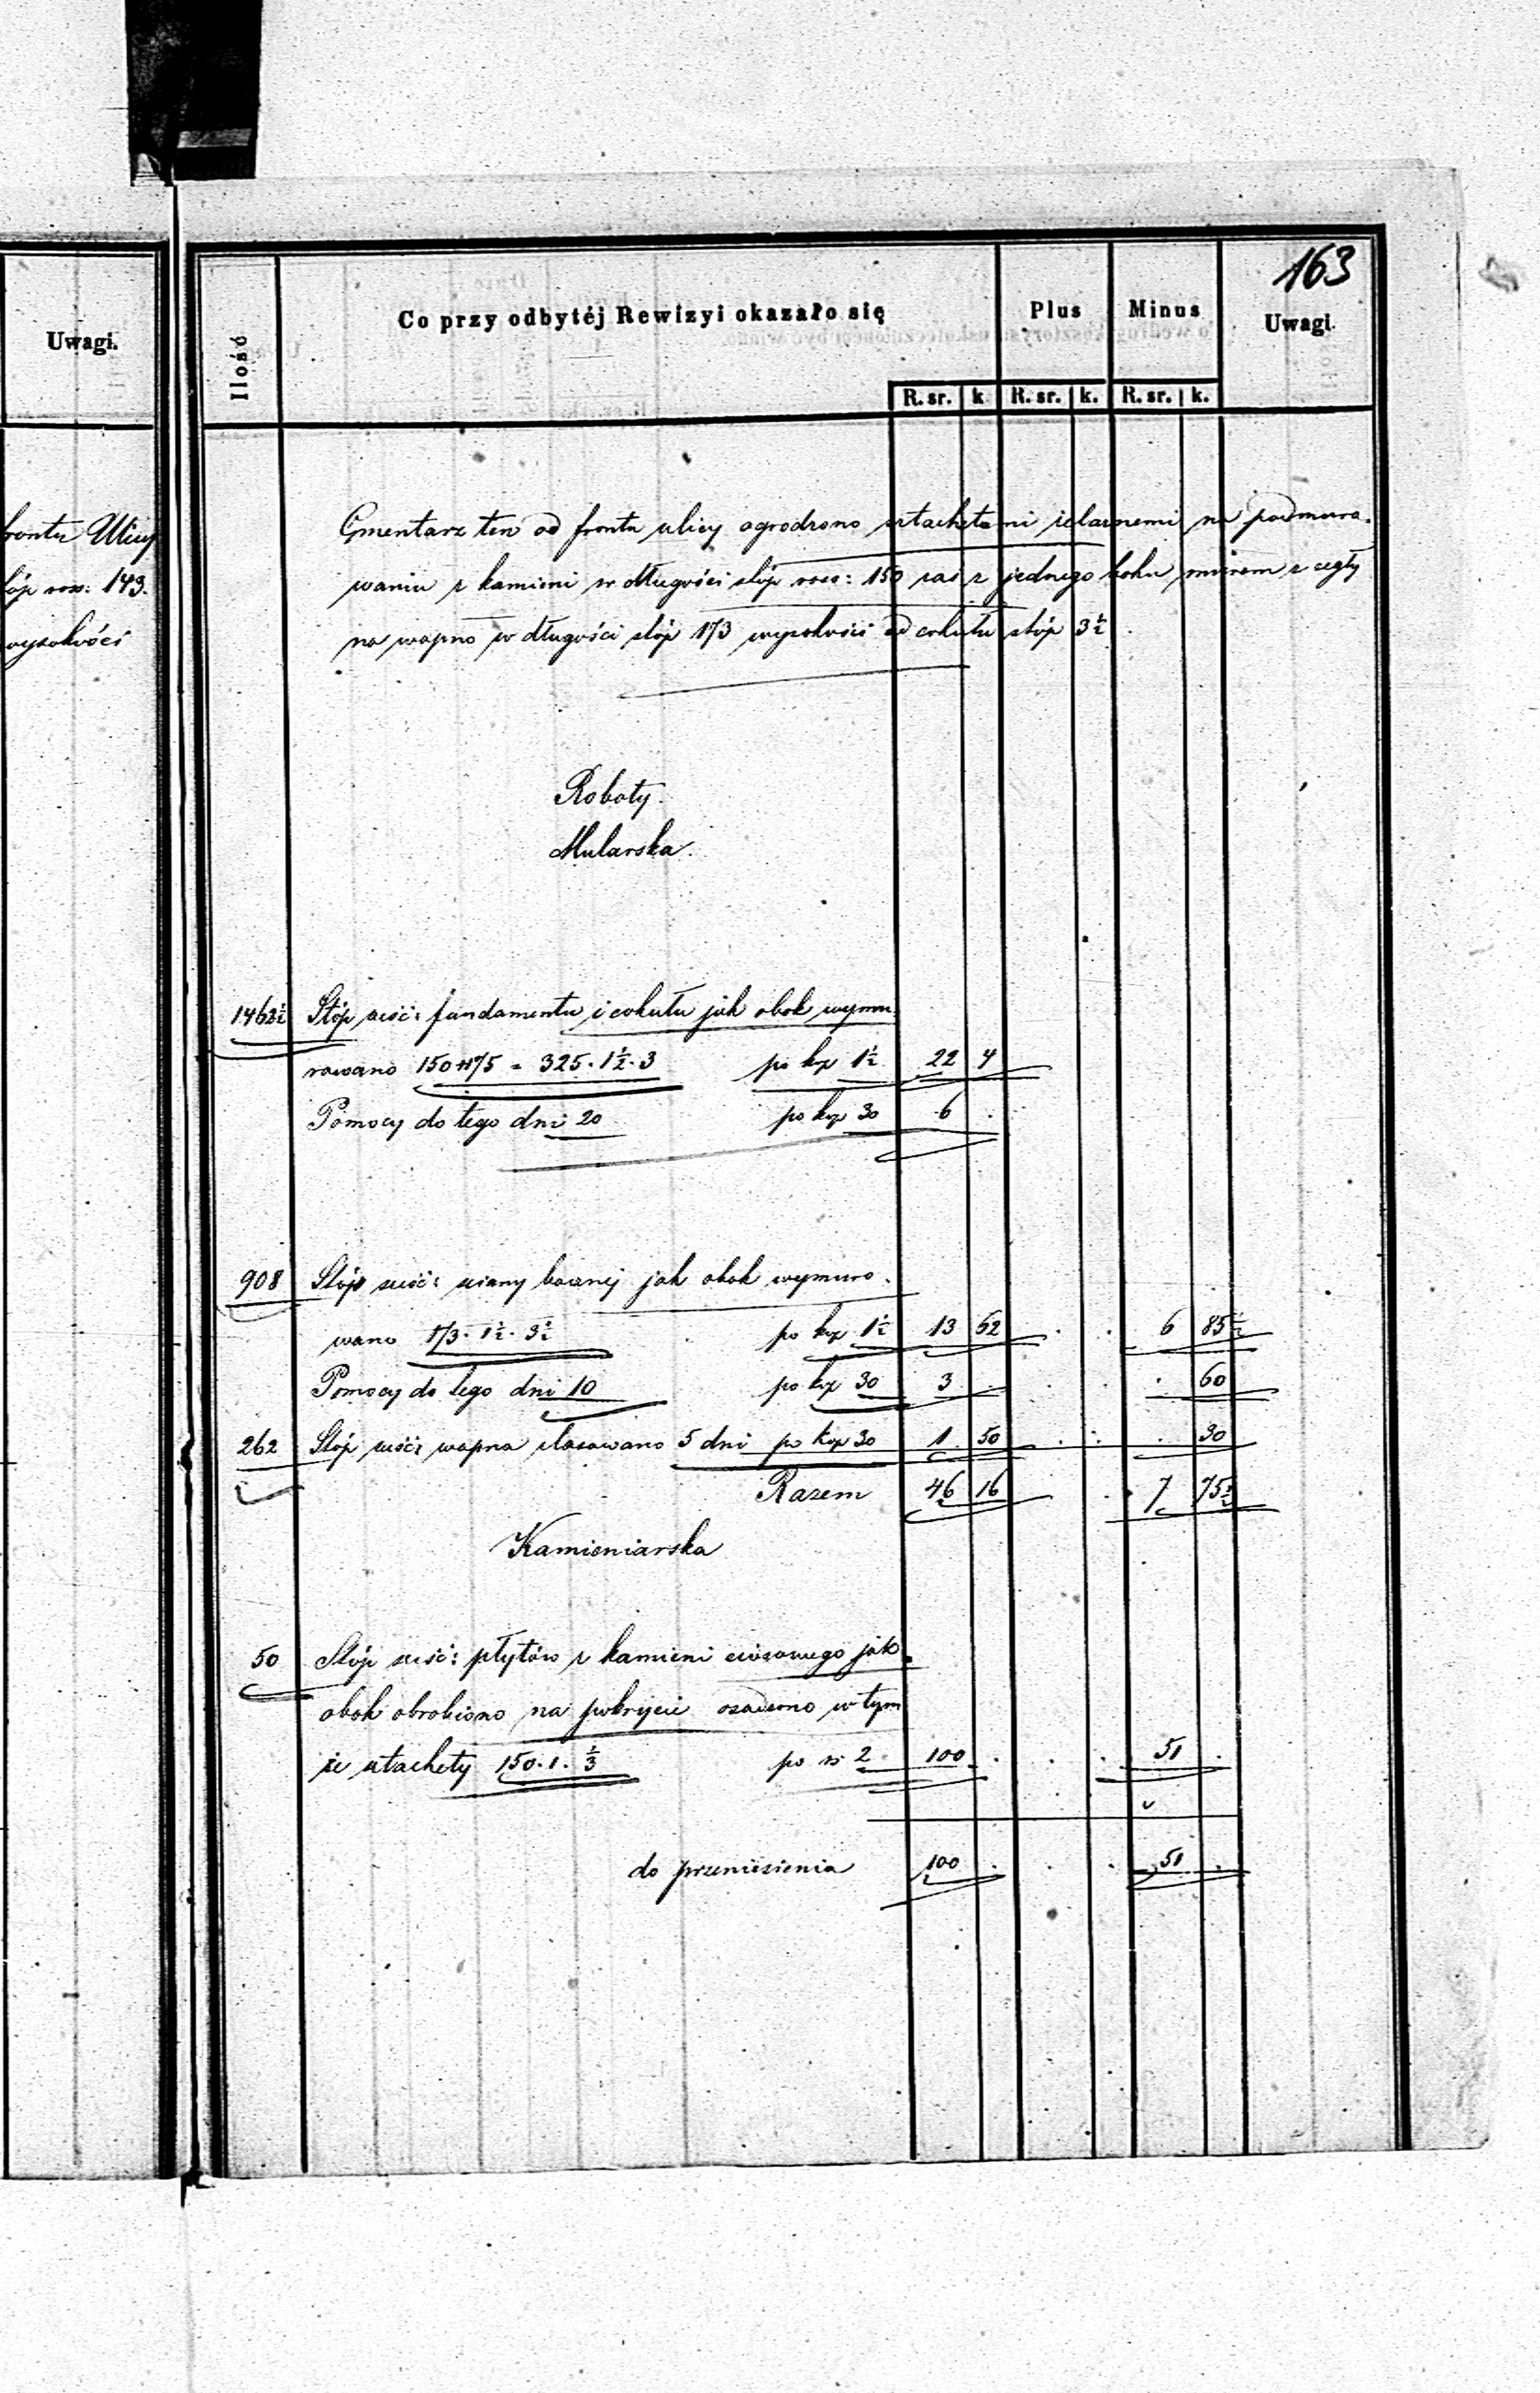 163
Uwagi.
Ilość
Co przy odbytéj Rewizyi okazało się
Plus
Minus
Uwagi.
R. sr. k R. sr. k. R. sr. k.
frontu Ulicy
stóp ross: 143.
wysokości
Cmentarz ten od frontu ulicy ogrodzono sztachetami żelaznemi na podmuro-
waniu z kamieni w długości stóp ross: 150 zaś z jednego boku murem z cegły
na wapno w długości stóp 173 wysokości od cokułu stóp 3½
Roboty.
Mularska.
1462½ Stóp sześć: fundamentu i cokułu jak obok wymu-
rowano 150+175 = 325.1½.3 po kop 1½ 22 4
Pomocy do tego dni 20 po kop 30 6 .
908 Stóp sześć: sciany bocznej jak obok wymuro-
wano 173.1½.3½ po kop 1½ 13 62 . . 6 85½
Pomocy do tego dni 10 po kop 30 3 . . . . 60
262 Stóp sześć: wapna lasowano 5 dni po kop 30 1 50 . . . 30
Razem 46 16 . 7 75½
Kamieniarska
50 Stóp sześć: płytów z kamieni ciosowego jak
obok obrobiono na pokrycie osadzono w tym
że sztachety 150.1.⅓ po rs 2 100 . . . 51 .
do przeniesienia 100 . . . 51 .